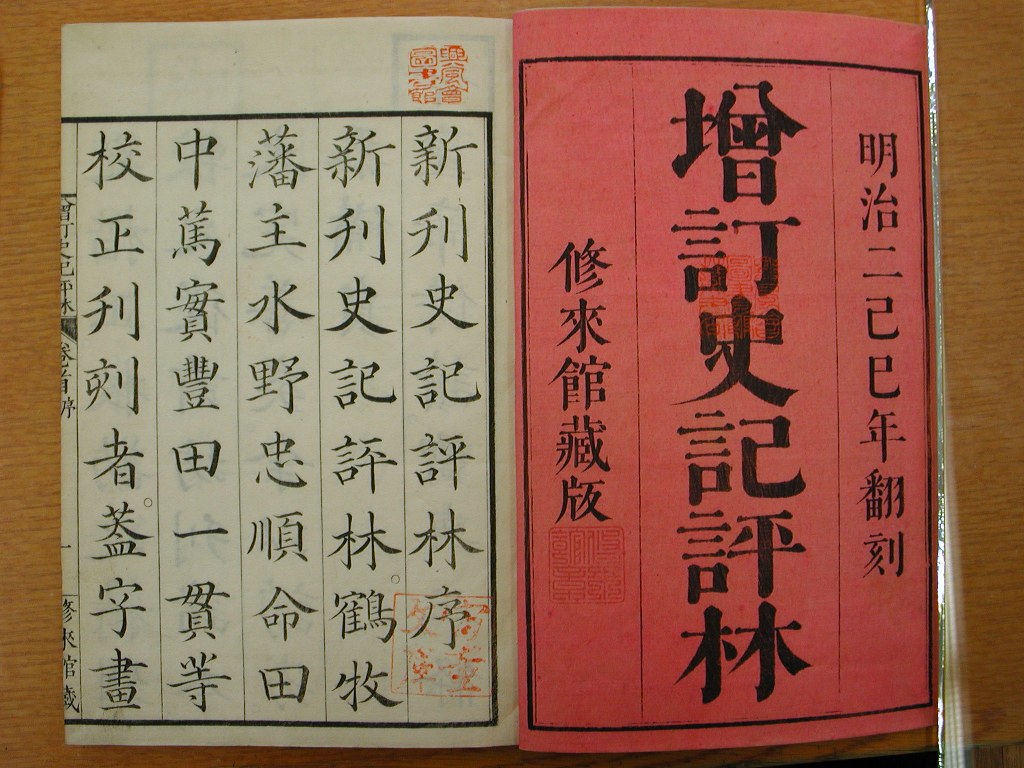 明治二己巳年翻刻
增訂史記評林
修來館藏版
新刊史記評林序
新刊史記評林。鶴牧
藩主水野忠順命田
中篤實豐田一貫等
校正刊刻者。葢字畫
增訂史記評林
卷首序
一
修來館藏